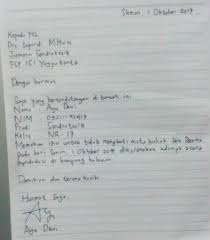 Senin, 1 Oktober 2018
Kepada Yth.
Drs. Supardi M.Hum
Jurusan Sendratasik
FSP ISI Yogyakarta
Dengan hormat
Saya yang bertandatangan di bawah ini:
Nama : Ayu Dewi
NIM
Prodi : Sendratasik
Kelas : NR - 17
Memohon izin untuk tidak mengikuti mata kuliah Seni Drama
pada hari Senin, 1 Oktober 2018 dikarenakan adanya acara
di kampung halaman
Demikian dan terima kasih
Hormat Saya,
Ayu Dewi